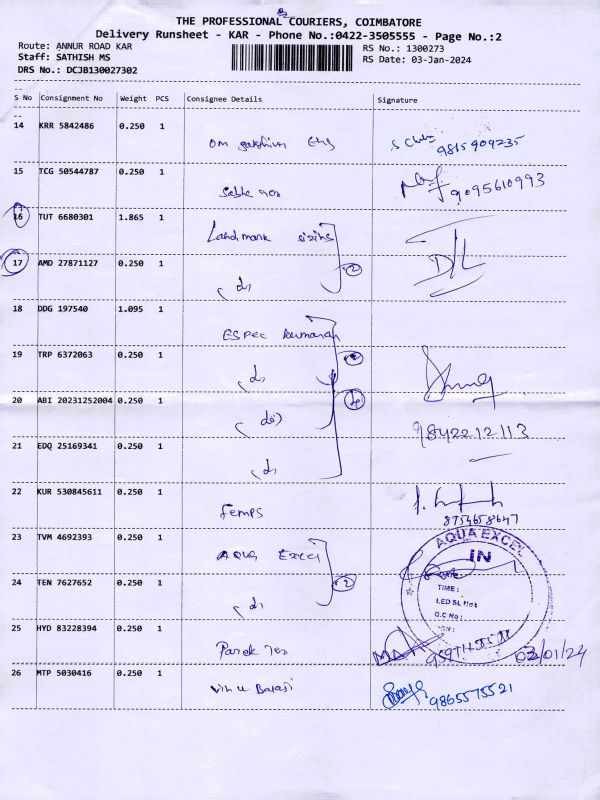 THE PROFESSIONAL COURIERS, COIMBATORE
Delivery Runsheet - KAR - Phone No.:0422-3505555 - Page No.:2
Route: ANNUR ROAD KAR
RS No.: 1300273
Staff: SATHISH MS
RS Date: 03-Jan-2024
DRS No.: DCJB130027302
S No Consignment No Weight PCS Consignee Details Signature
14 KRR 5842486 0.250 1
9815909235
15 TCG 50544787 0.250 1
9095610993
16 TUT 6680301 1.865 1
Landmark
17 AMD 27871127 0.250 1
18 DDG 197540 1.095 1
ESPEE kumaran
19 TRP 6372063 0.250 1
20 ABI 20231252004 0.250 1
9842212113
21 EDQ 25169341 0.250 1
22 KUR 530845611 0.250 1
Femps
8754658647
23 TVM 4692393 0.250 1
Aqua Excel
AQUA EXCEL
IN
24 TEN 7627652 0.250 1
TIME :
25 HYD 83228394 0.250 1
03/01/24
26 MTP 5030416 0.250 1
Balaji
9865575521